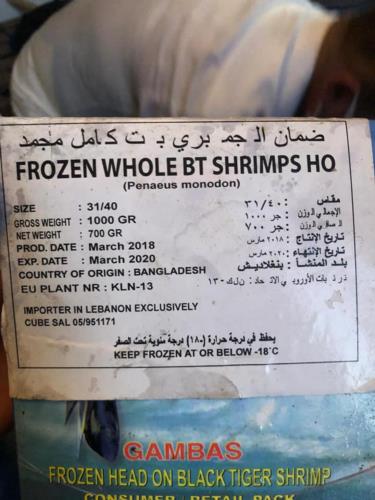 ضمان الجمبري ب ت كامل مجمد
FROZEN WHOLE BT SHRIMPS HO
(Penaeus monodon)
SIZE : 31/40
GROSS WEIGHT : 1000 GR
NET WEIGHT : 700 GR
PROD. DATE : March 2018
EXP. DATE : March 2020
COUNTRY OF ORIGIN : BANGLADESH
EU PLANT NR : KLN-13
مقاس : ٣١/٤٠
الإجمالي الوزن : جر ١٠٠٠
الصافي الوزن : جر ٧٠٠
تاريخ الإنتاج : ٢٠١٨ مارس
تاريخ الإنتهاء : ٢٠٢٠ مارس
بلد المنشأ : بنغلاديش
IMPORTER IN LEBANON EXCLUSIVELY
CUBE SAL 05/951171
يحفظ في درجة حرارة (-١٨) درجة مئوية تحت الصفر
KEEP FROZEN AT OR BELOW -18°C
GAMBAS
FROZEN HEAD ON BLACK TIGER SHRIMP
CONSUMER / RETAIL PACK